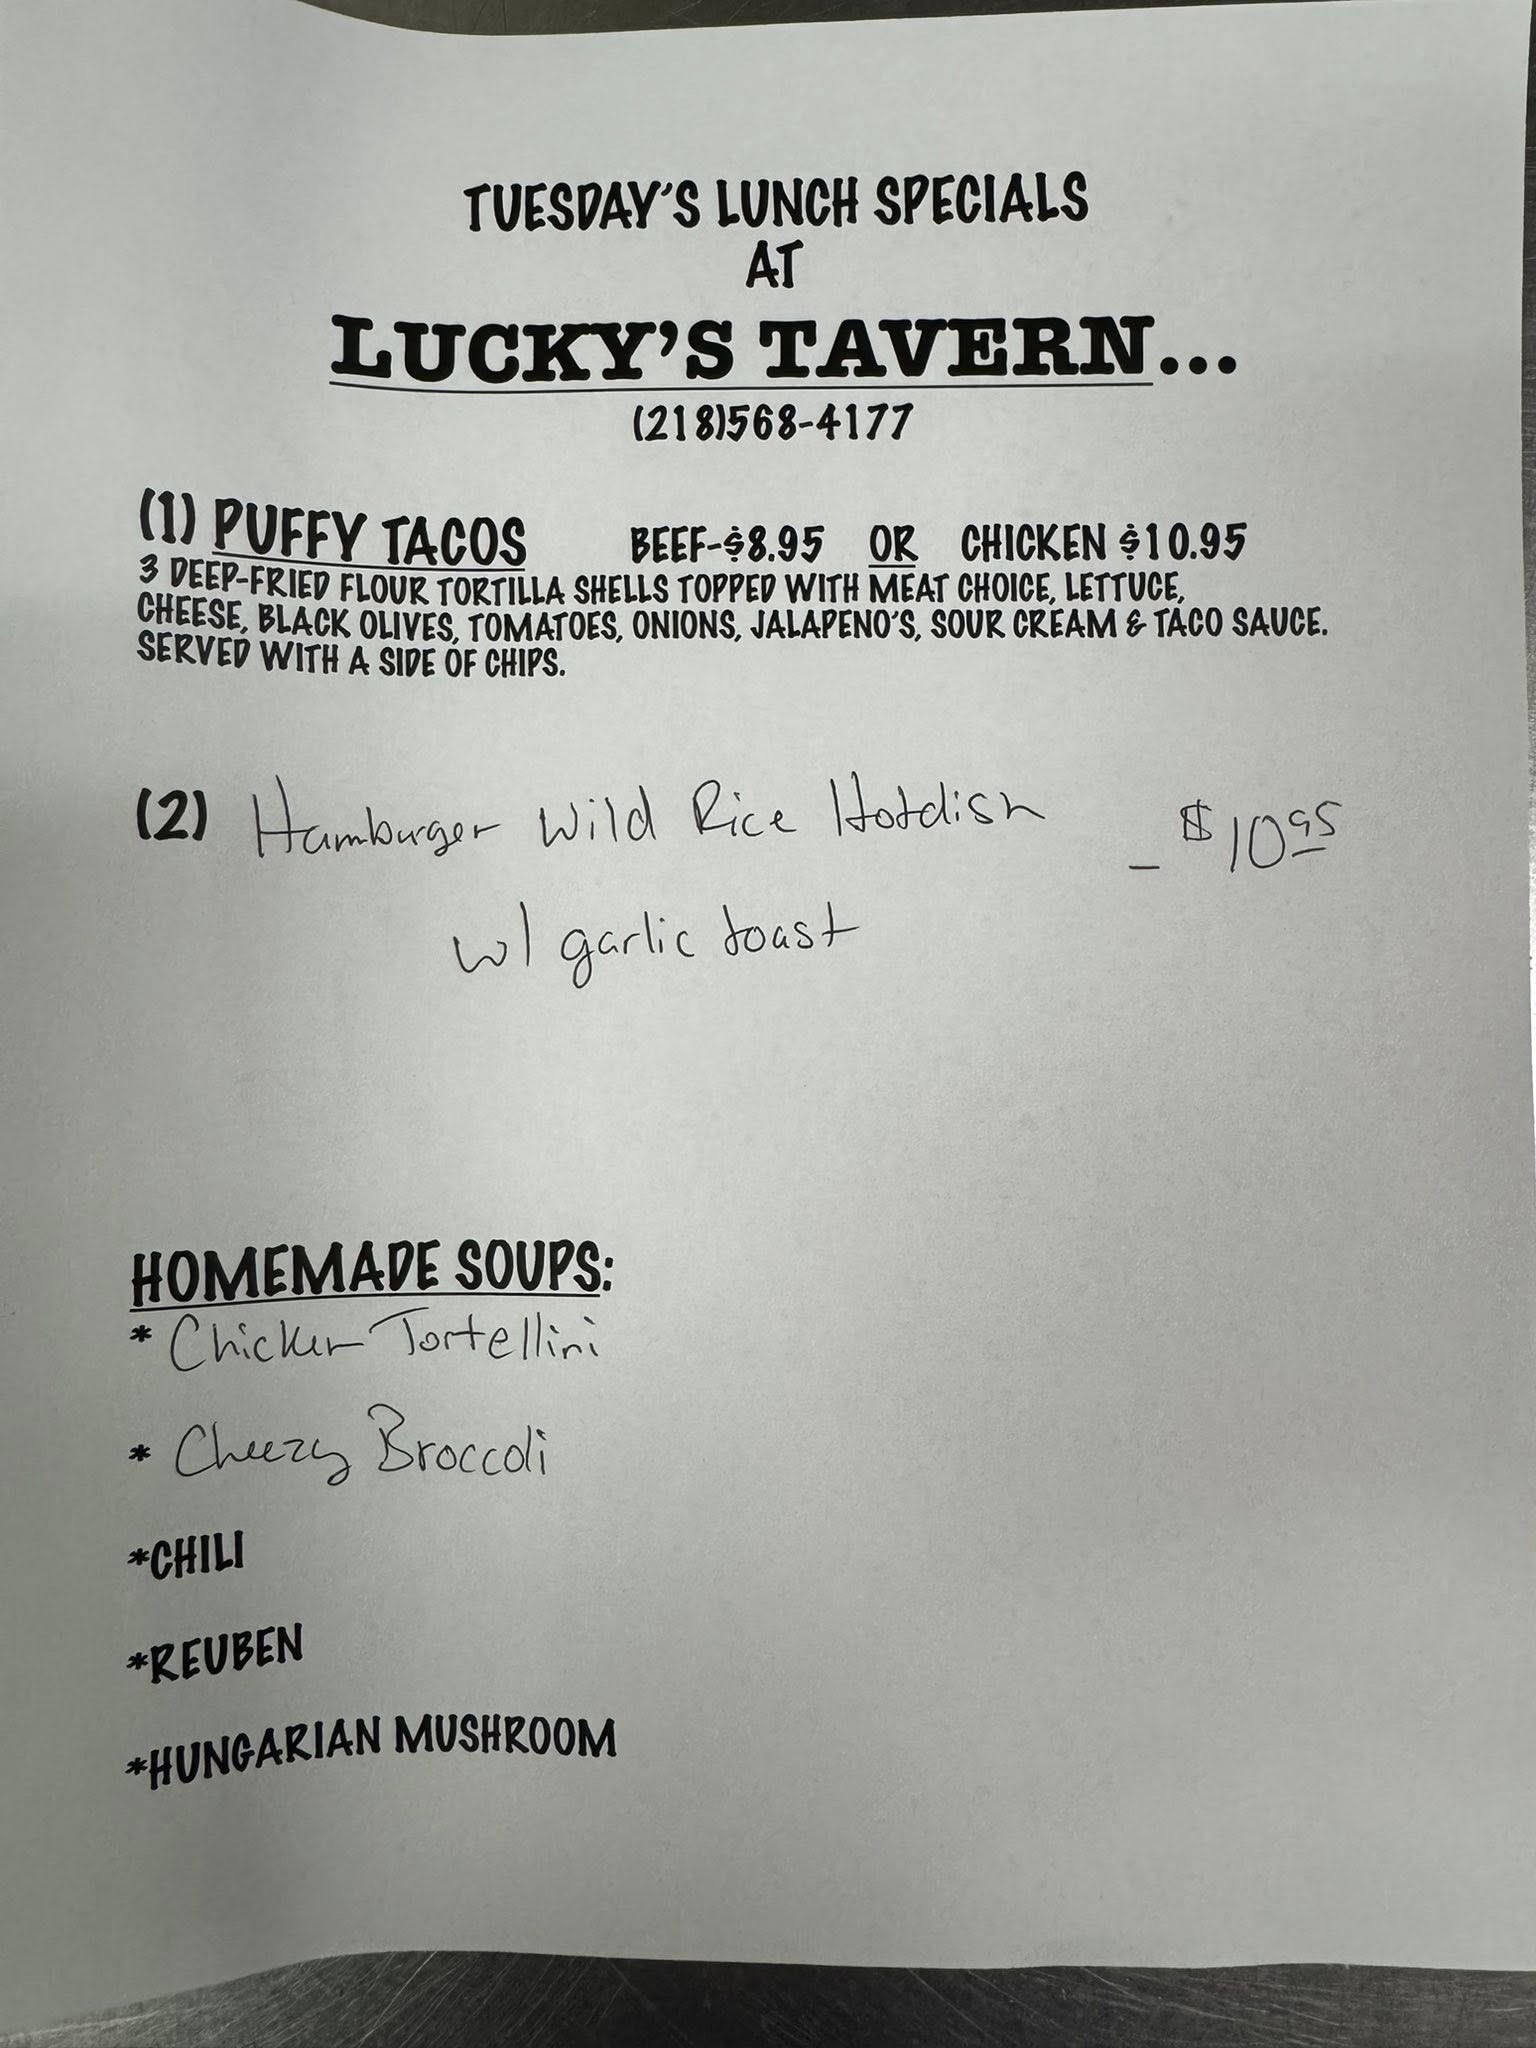 TUESDAY'S LUNCH SPECIALS
AT
LUCKY'S TAVERN...
(218)568-4177
(1) PUFFY TACOS BEEF-$8.95 OR CHICKEN $10.95
3 DEEP-FRIED FLOUR TORTILLA SHELLS TOPPED WITH MEAT CHOICE, LETTUCE,
CHEESE, BLACK OLIVES, TOMATOES, ONIONS, JALAPENO'S, SOUR CREAM & TACO SAUCE.
SERVED WITH A SIDE OF CHIPS.
(2) Hamburger Wild Rice Hotdish - $10.95
w/ garlic toast
HOMEMADE SOUPS:
* Chicken Tortellini
* Cheezy Broccoli
*CHILI
*REUBEN
*HUNGARIAN MUSHROOM